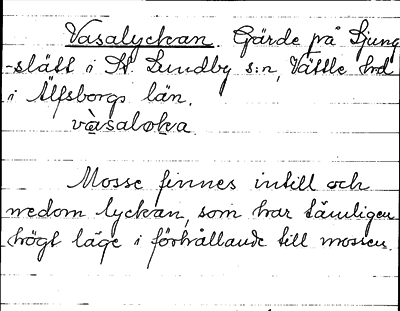 Vasalyckan. Gärde på Ljung
-slätt i St. Lundby s:n, Vättle hrd
i Älfsborgs län.
vàsaloka
Mosse finnes intill och
nedom lyckan, som har tämligen
högt läge i förhållande till mossen.